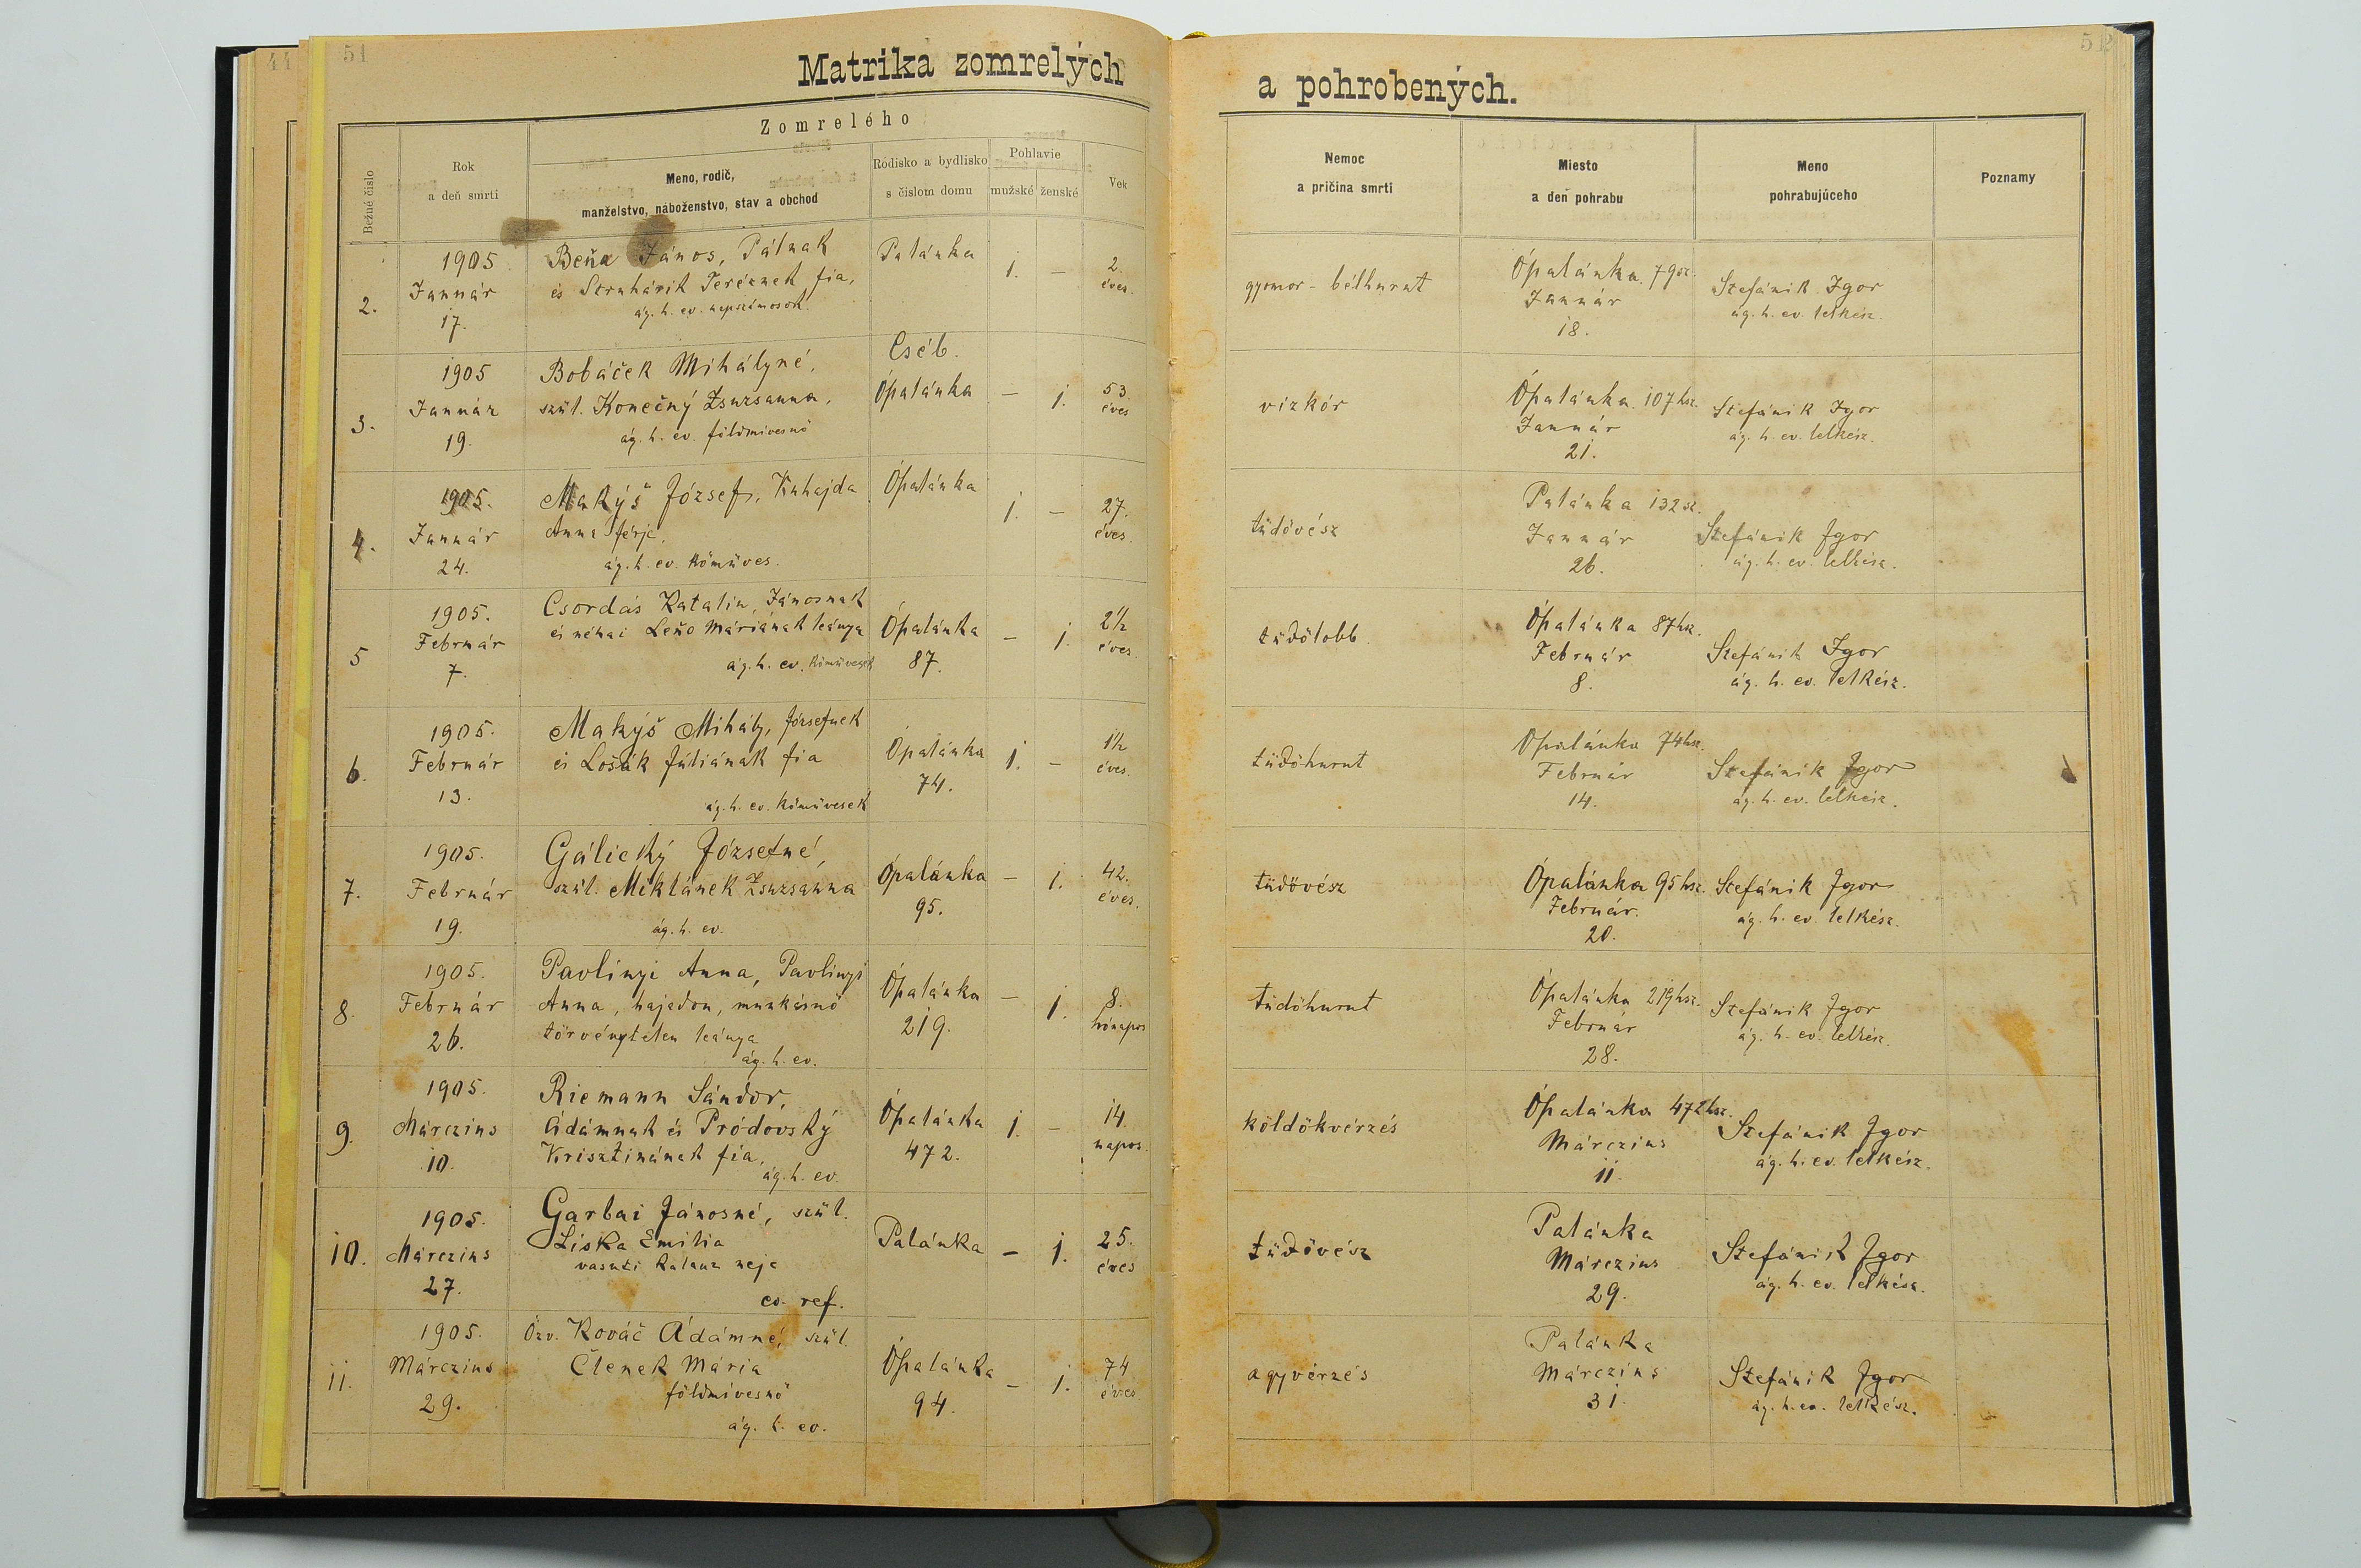 44
51
52
Matrika zomrelých a pohrobených.
Zomrelého
Bežné čislo
Rok
a deň smrti
Meno, rodič,
manželstvo, náboženstvo, stav a obchod
Rodisko a bydlisko
s čislom domu
Pohlavie
mužské
ženské
Vek
Nemoc
a pričina smrti
Miesto
a deň pohrabu
Meno
pohrabujúceho
Poznamy
2.
1905
Január
17.
Beňa János, Pálnak
és Struhárik Teréznek fia,
ág. h. ev. napszámosok
Palánka
1.
—
2.
éves.
gyomor - bélhurut
Ópalánka. 79 sz.
Január
18.
Stefánik Igor
ág. h. ev. lelkész.
3.
1905
Január
19.
Bobáček Mihályné,
szül. Konečný Zsuzsanna,
ág. h. ev. földmivesnő
Cséb.
Ópalánka
—
1.
53.
éves
vizkór
Ópalánka. 107 hsz.
Január
21.
Stefánik Igor
ág. h. ev. lelkész.
4.
1905.
Január
24.
Makýš József, Kuhajda
Anna férje,
ág. h. ev. kőműves.
Ópalánka
1.
—
27.
éves.
tüdővész
Palánka 132 sz.
Január
26.
Stefánik Igor
ág. h. ev. lelkész.
5
1905.
Február
7.
Csordás Katalin, Jánosnak
és néhai Leňo Máriának leánya
ág. h. ev. kőművesek
Ópalánka
87.
—
1.
2½
éves.
tüdőlobb
Ópalánka 87 hsz.
Február
8.
Stefánik Igor
ág. h. ev. lelkész.
6.
1905.
Február
13.
Makýš Mihály, Józsefnek
és Lošák Júliának fia
ág. h. ev. kőművesek
Ópalánka
74.
1.
—
1½
éves.
tüdőhurut
Ópalánka 74 hsz.
Február
14.
Stefánik Igor
ág. h. ev. lelkész.
7.
1905.
Február
19.
Gálický Józsefné,
szül. Miklánek Zsuzsanna
ág. h. ev.
Ópalánka
95.
—
1.
42.
éves.
tüdővész
Ópalánka 95 hsz.
Február.
20.
Stefánik Igor
ág. h. ev. lelkész.
8.
1905.
Február
26.
Pavlinyi Anna, Pavlinyi
Anna, hajadon, munkásnő
törvénytelen leánya
ág. h. ev.
Ópalánka
219.
—
1.
8.
hónapos
tüdőhurut
Ópalánka 219 hsz.
Február
28.
Stefánik Igor
ág. h. ev. lelkész.
9.
1905.
Márczius
10.
Riemann Sándor,
Ádámnak és Pródovský
Krisztinának fia,
ág. h. ev.
Ópalánka
472.
1.
—
14.
napos.
köldökvérzés
Ópalánka 472 hsz.
Márczius
11.
Stefánik Igor
ág. h. ev. lelkész.
10.
1905.
Márczius
27.
Garbai Jánosné, szül.
Liska Emilia
vasuti kalauz neje
ev. ref.
Palánka
—
1.
25.
éves
tüdővész
Palánka
Márczius
29.
Stefánik Igor
ág. h. ev. lelkész.
11.
1905.
Márczius
29.
Özv. Kováč Ádámné, szül.
Členek Mária
földmívesnő
ág. h. ev.
Ópalánka
94.
—
1.
74
éves
agyvérzés
Palánka
Márczius
31.
Stefánik Igor
ág. h. ev. lelkész.